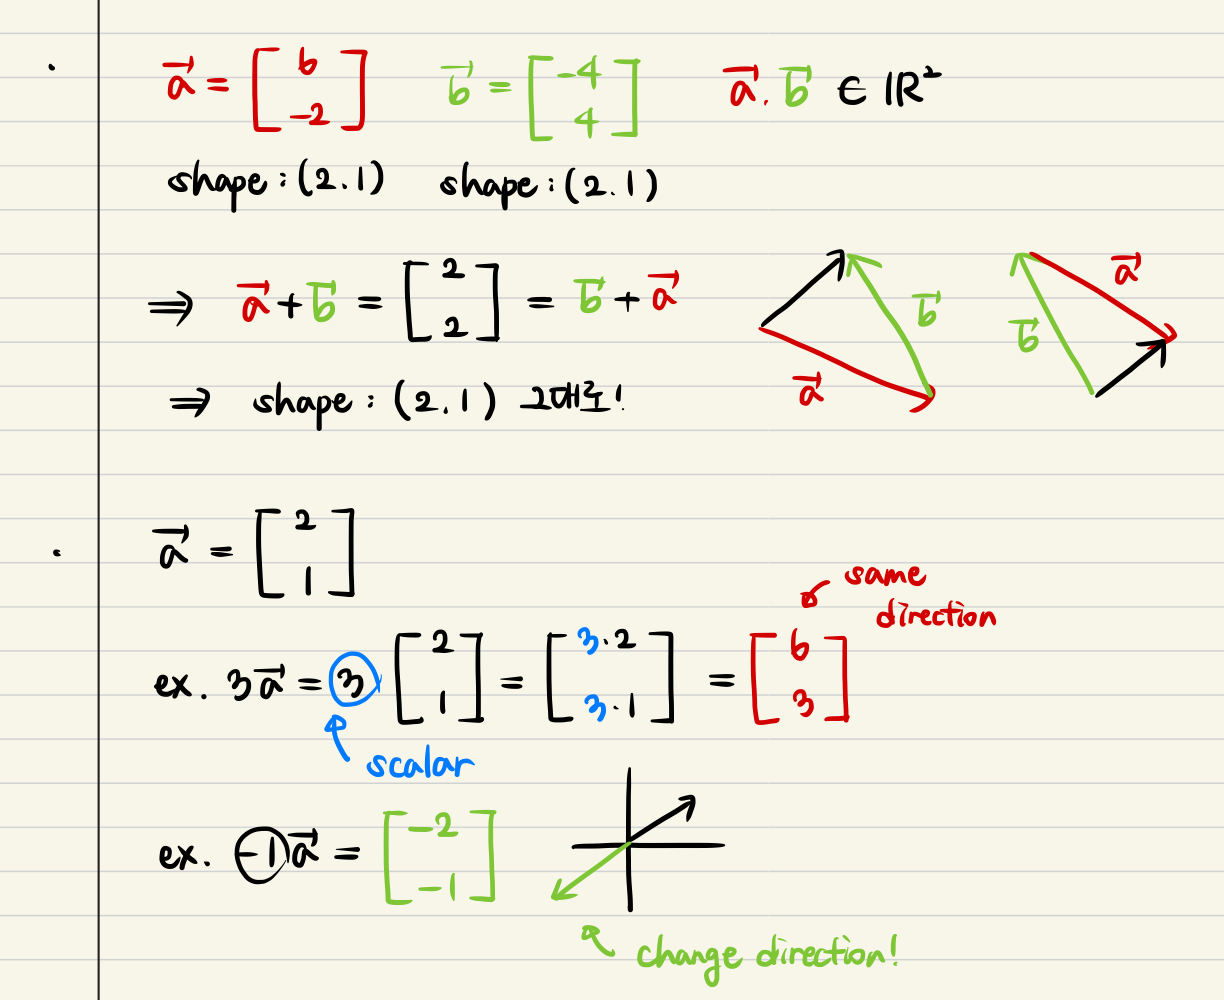 · a⃗ = [6 -2] b⃗ = [-4 4] a⃗. b⃗ ∈ ℝ²
shape : (2.1) shape : (2.1)
⇒ a⃗ + b⃗ = [2 2] = b⃗ + a⃗
a⃗ b⃗ b⃗ a⃗
⇒ shape : (2.1) 그대로!
· a⃗ = [2 1]
same
direction
ex. 3a⃗ = 3 [2 1] = [3·2 3·1] = [6 3]
scalar
ex. -1a⃗ = [-2 -1]
change direction!